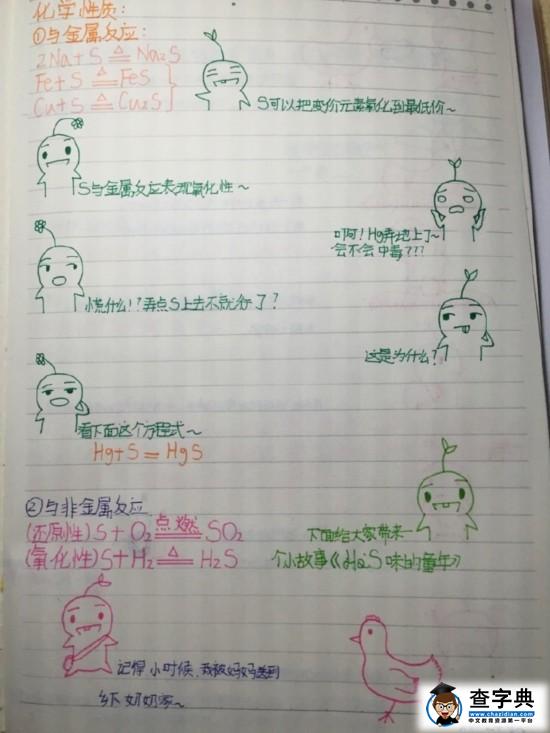 化学性质:
①与金属反应:
2Na+S △══ Na₂S
Fe+S △══ FeS
Cu+S △══ Cu₂S
S可以把变价元素氧化到最低价~
S与金属反应表现氧化性~
啊!Hg弄地上了~
会不会中毒???
慌什么!?弄点S上去不就行了?
这是为什么?
看下面这个方程式~
Hg+S══HgS
②与非金属反应
(还原性)S+O₂ 点燃══ SO₂
(氧化性)S+H₂ △══ H₂S
下面给大家带来一
个小故事《H₂S味的童年》
记得小时候,我被妈妈送到
乡下奶奶家~
查字典
www.chazidian.com
中文教育资源第一平台